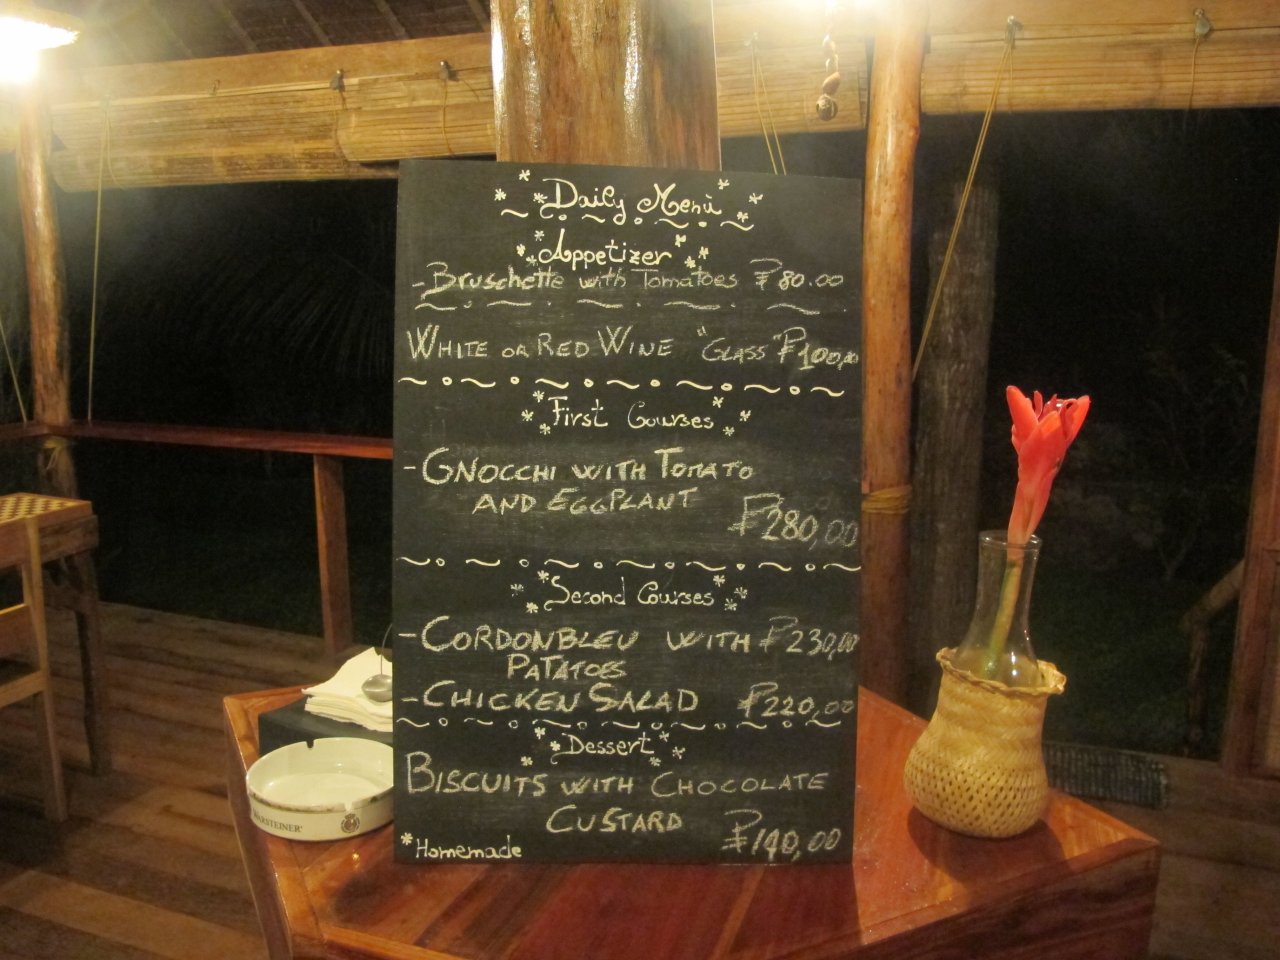 Daily Menù
Appetizer
- Bruschette with Tomatoes ₱80.00
WHITE OR RED WINE "GLASS" ₱100,00
First Courses
- GNOCCHI WITH TOMATO
AND EGGPLANT
₱280,00
Second Courses
- CORDONBLEU WITH ₱230,00
PATATOES
- CHICKEN SALAD ₱220,00
Dessert
BISCUITS WITH CHOCOLATE
CUSTARD ₱140,00
*Homemade
WARSTEINER